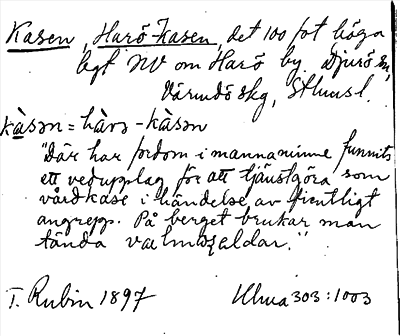 Kasen, Harö-kasen, det 100 fot höga
bgt NV om Harö by, Djurö sn,
Värmdö skg, Sthmsl.
kàsən = hàrə-kàsən
"Där har fordom i mannaminne funnits
ett vedupplag för att tjänstgöra som
vårdkase i händelse av fientligt
angrepp. På berget brukar man
tända valmseldar."
T. Rubin 1897 Ulma 303:1003